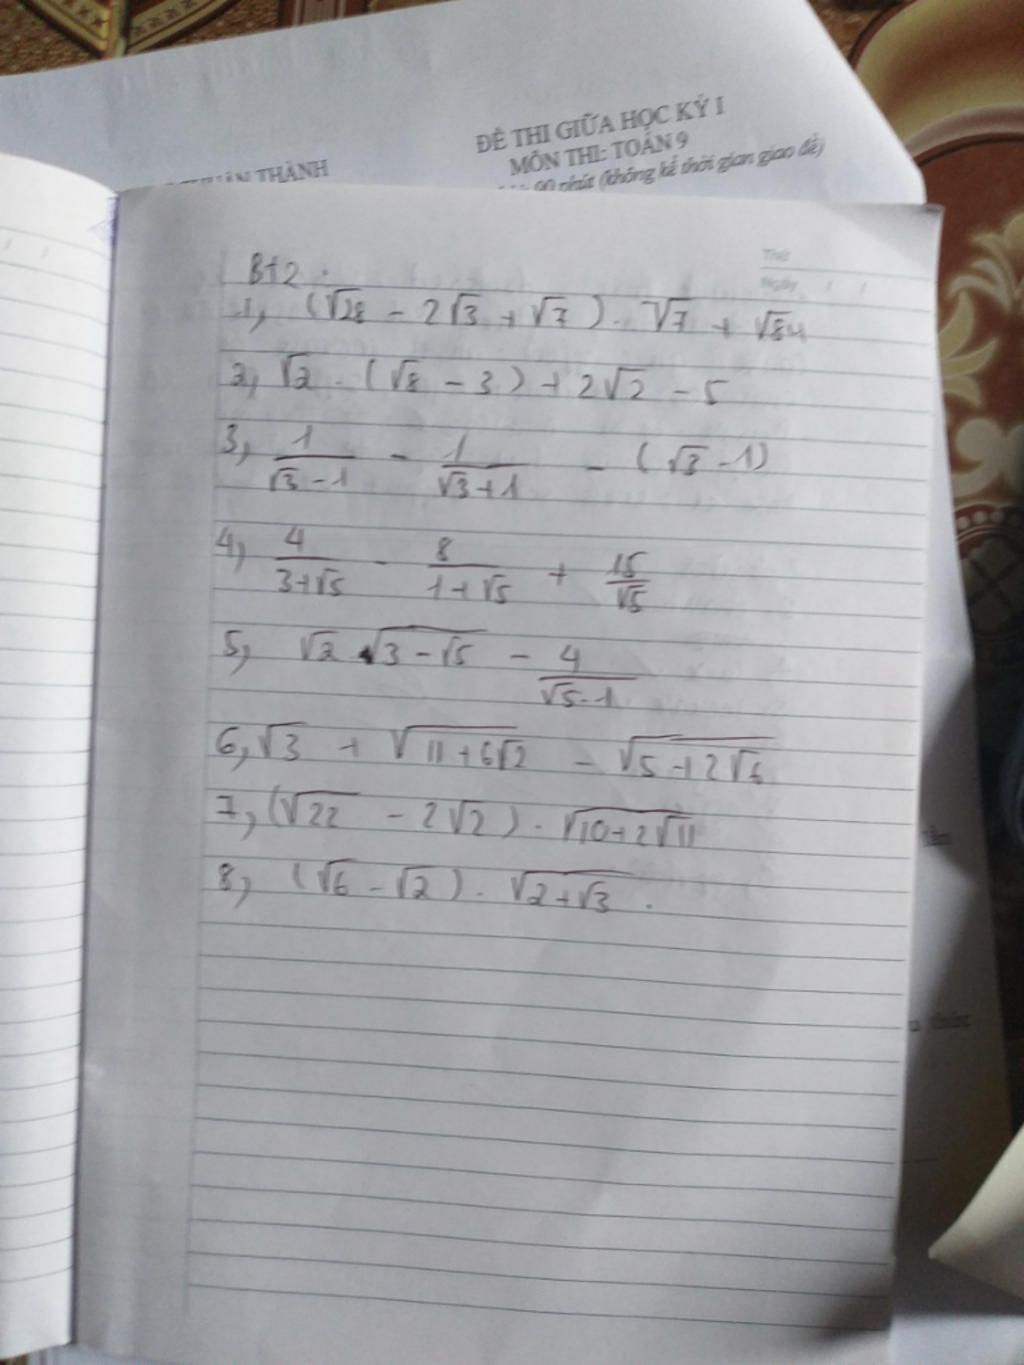 ĐỀ THI GIỮA HỌC KỲ I
MÔN THI: TOÁN 9
THÀNH
90 phút (không kể thời gian giao đề)
Thứ
Ngày
Bt2:
1, (√28 - 2√3 + √7) . √7 + √84
2, √2 . (√8 - 3) + 2√2 - 5
3, 1/(√3-1) - 1/(√3+1) - (√3-1)
4, 4/(3+√5) - 8/(1+√5) + 15/√5
5, √2 . √(3-√5) - 4/(√5-1)
6, √3 + √(11+6√2) - √(5+2√6)
7, (√22 - 2√2) . √(10+2√11)
8, (√6 - √2) . √(2+√3) .